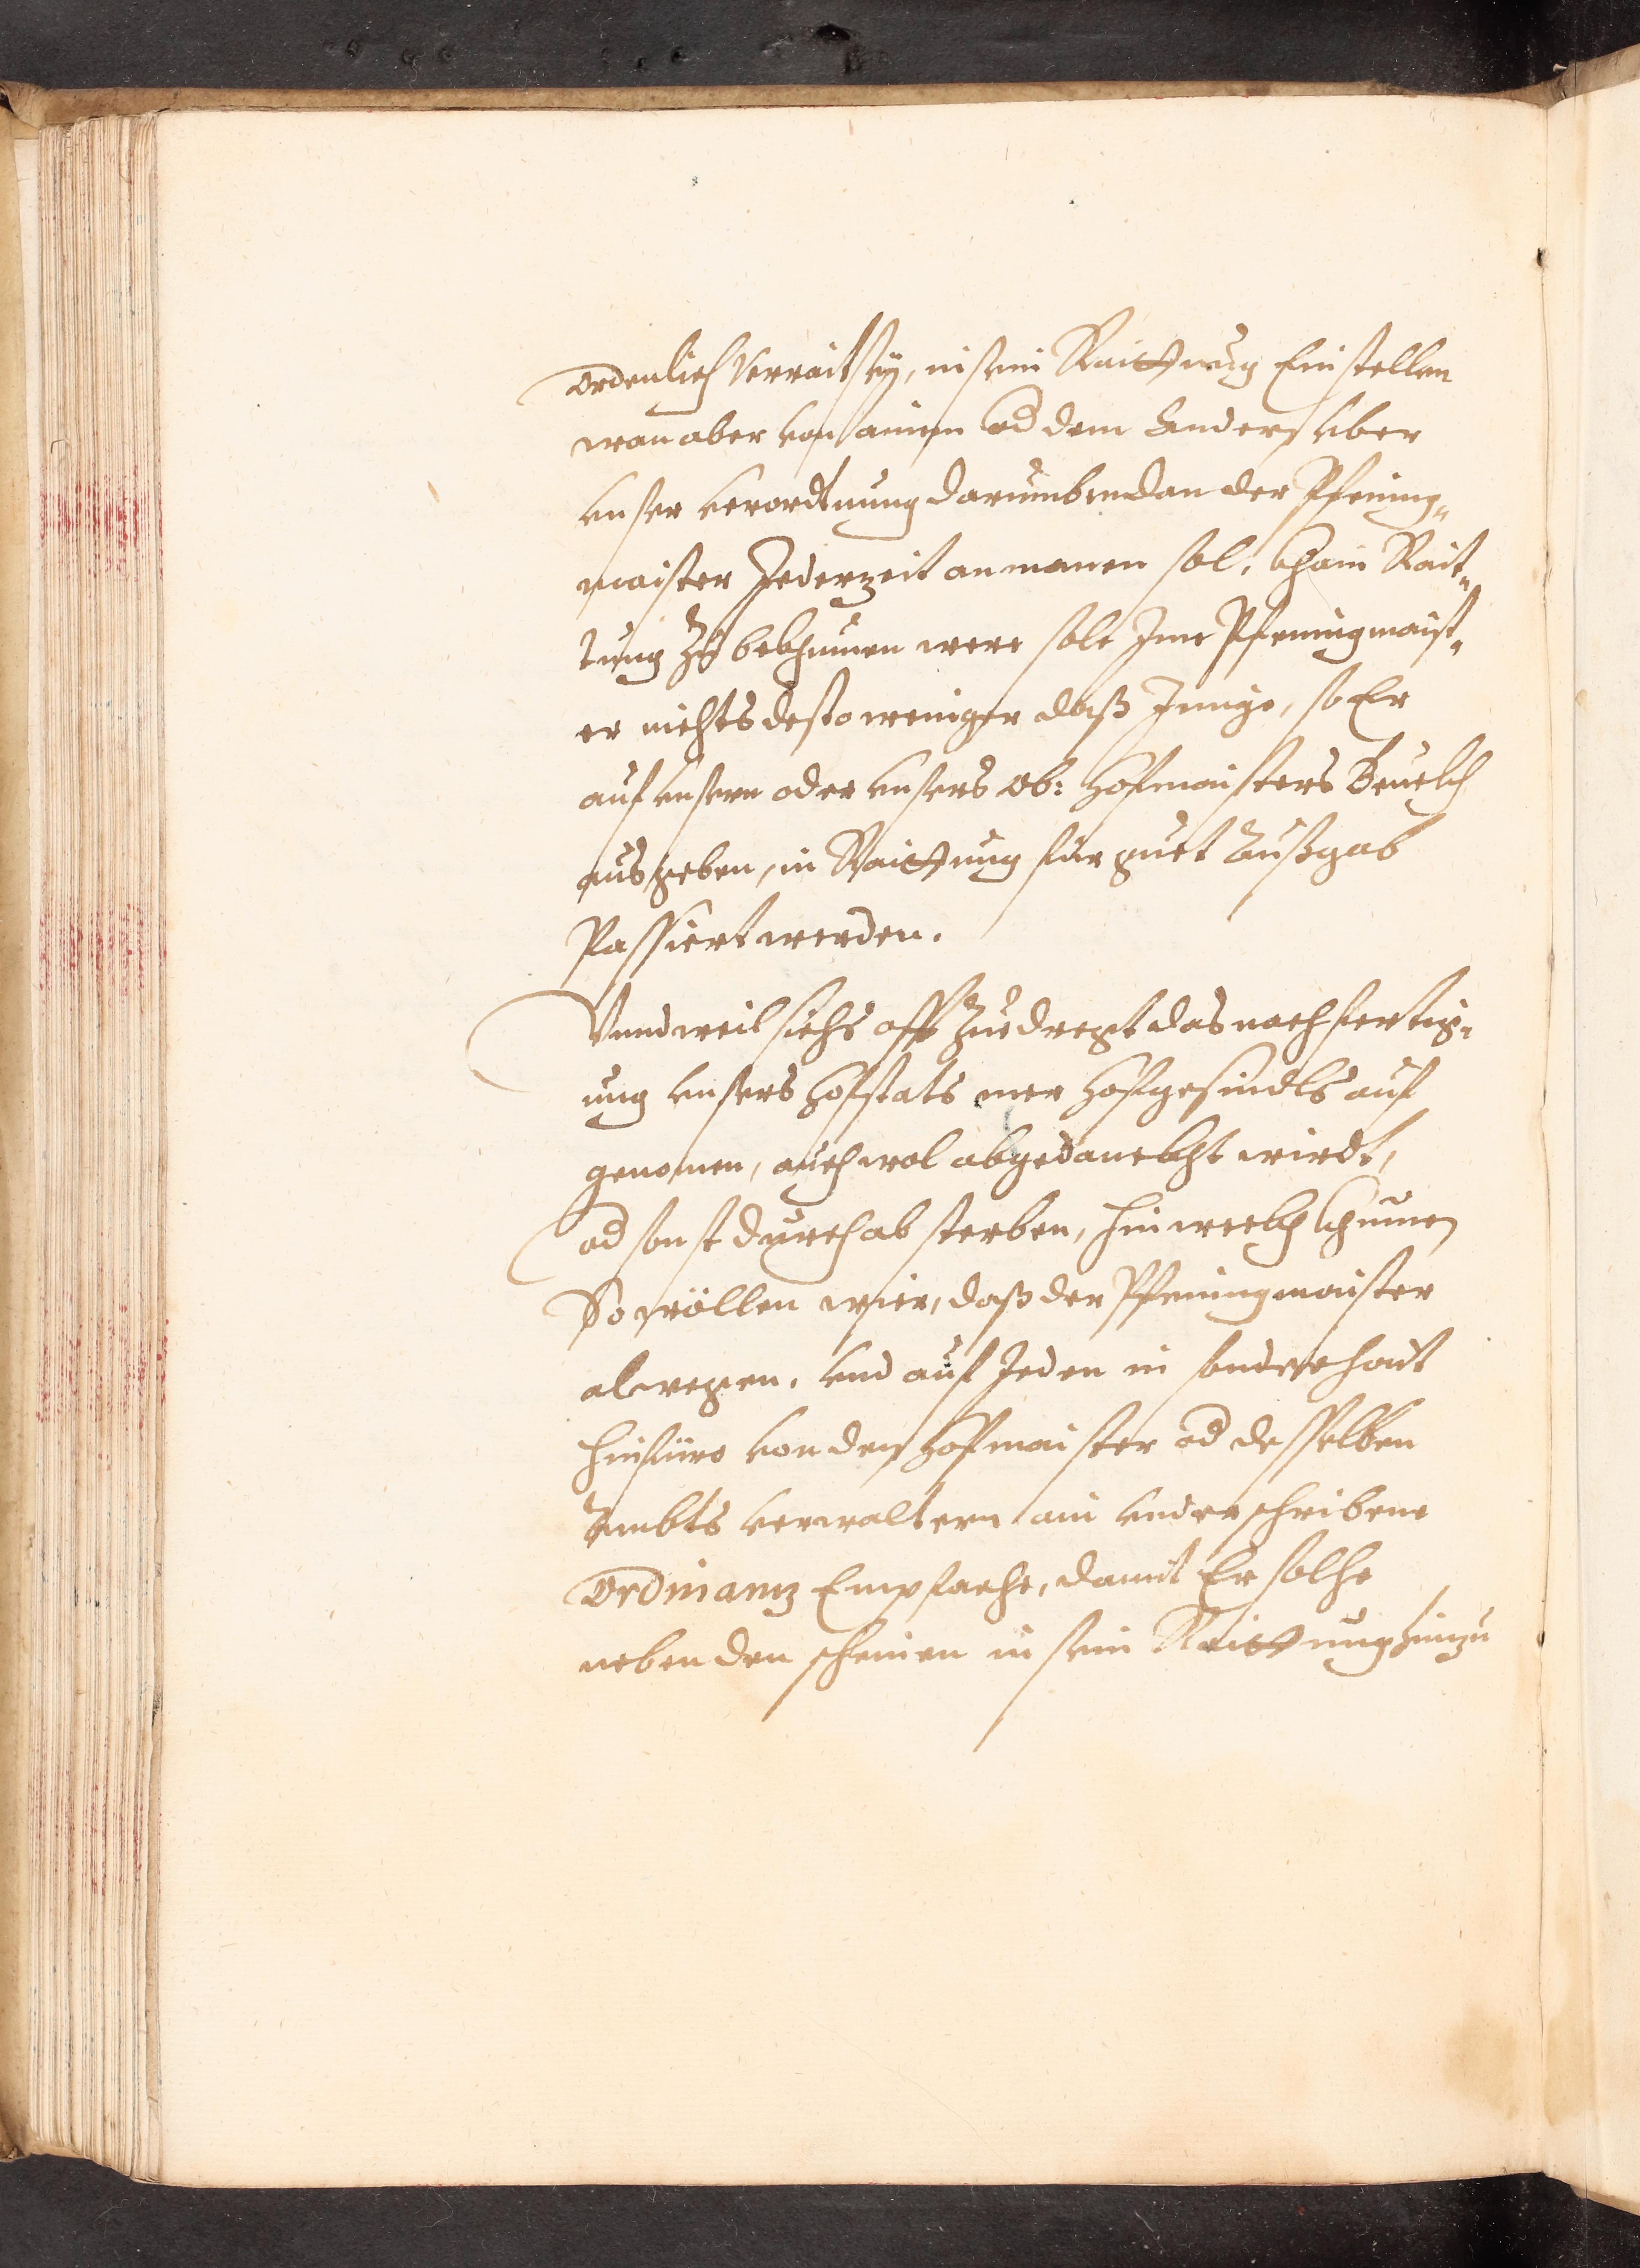 ordenlich verrait sey, in sein Raittung Einstellen
wan aber von ainem od dem Andern über
unser verordtnung darumben dan der Pfening„
maister Jederzeit anmanen sol, khain Rait„
tung zu bekhumen were solt Ime Pfeningmaist„
er nichts destoweniger daß Jenige, so Er
auf unsern oder unsers ob: hofmaisters Beuelch
ausgeben, in Raittung für guet Außgab
Passiert werden.
Vnnd weil sichs offt zuedregt das nach fertig„
ung unsers hofstats mer hofgesindls auf
genomen, auch wol abgedanckht wirdt,
od sonst durch absterben, hinweckh khumen
So wöllen wier, daß der Pfeningmaister
alwegen, und auf Jeden in sonderhait
hinfüro von dem hofmaister od desselben
Ambts verwaltern ain underschribene
Ordinanz Empfache, damit Er solche
neben den scheinen in sein Raittung hinzu